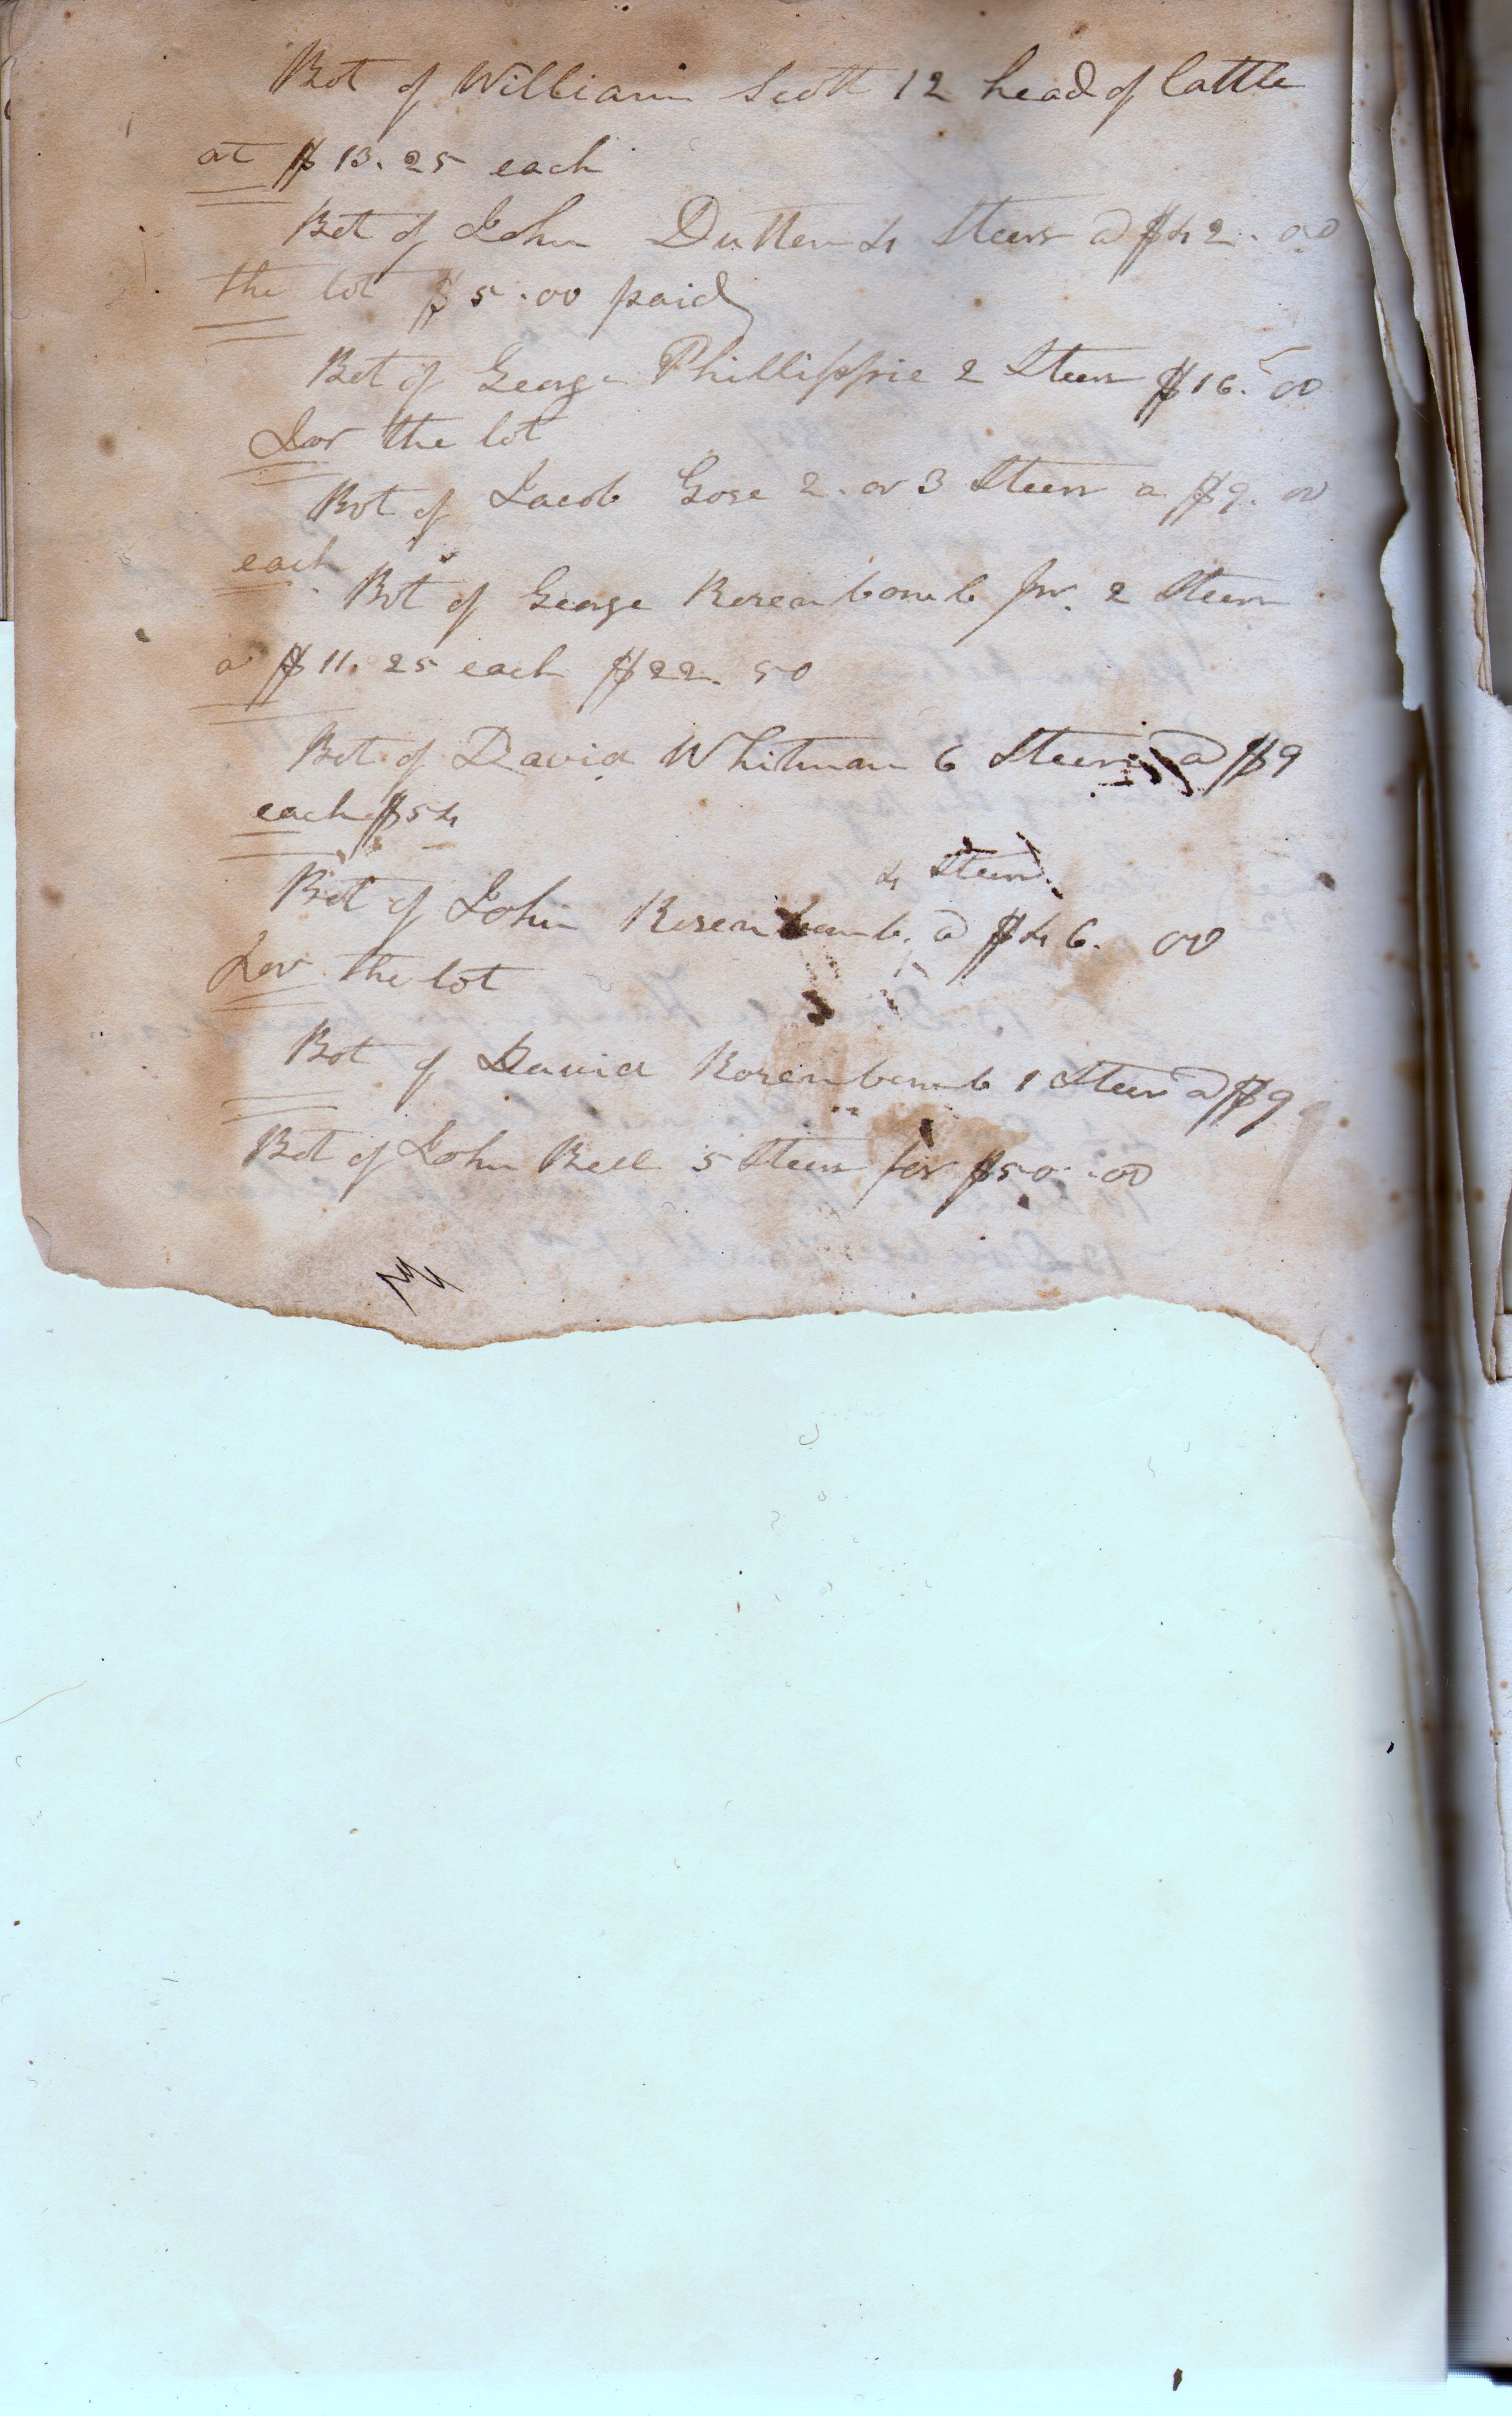 Bot of William Scott 12 head of Cattle
at $13.25 each
Bot of John Dutten 4 Steers @ $42.00
the lot $5.00 paid
Bot of George Phillippie 2 Steers $16.00
For the lot
Bot of Jacob Gose 2 or 3 Steers a $9.00
each
Bot of George Rosenbomb Jr. 2 Steers
a $11.25 each $22.50
Bot of David Whitman 6 Steers @ $9
each $54
4 Steers
Bot of John Rosenbomb @ $46.00
For the lot
Bot of David Rosenbomb 1 Steer @ $9
Bot of John Bell 5 Steers for $50.00